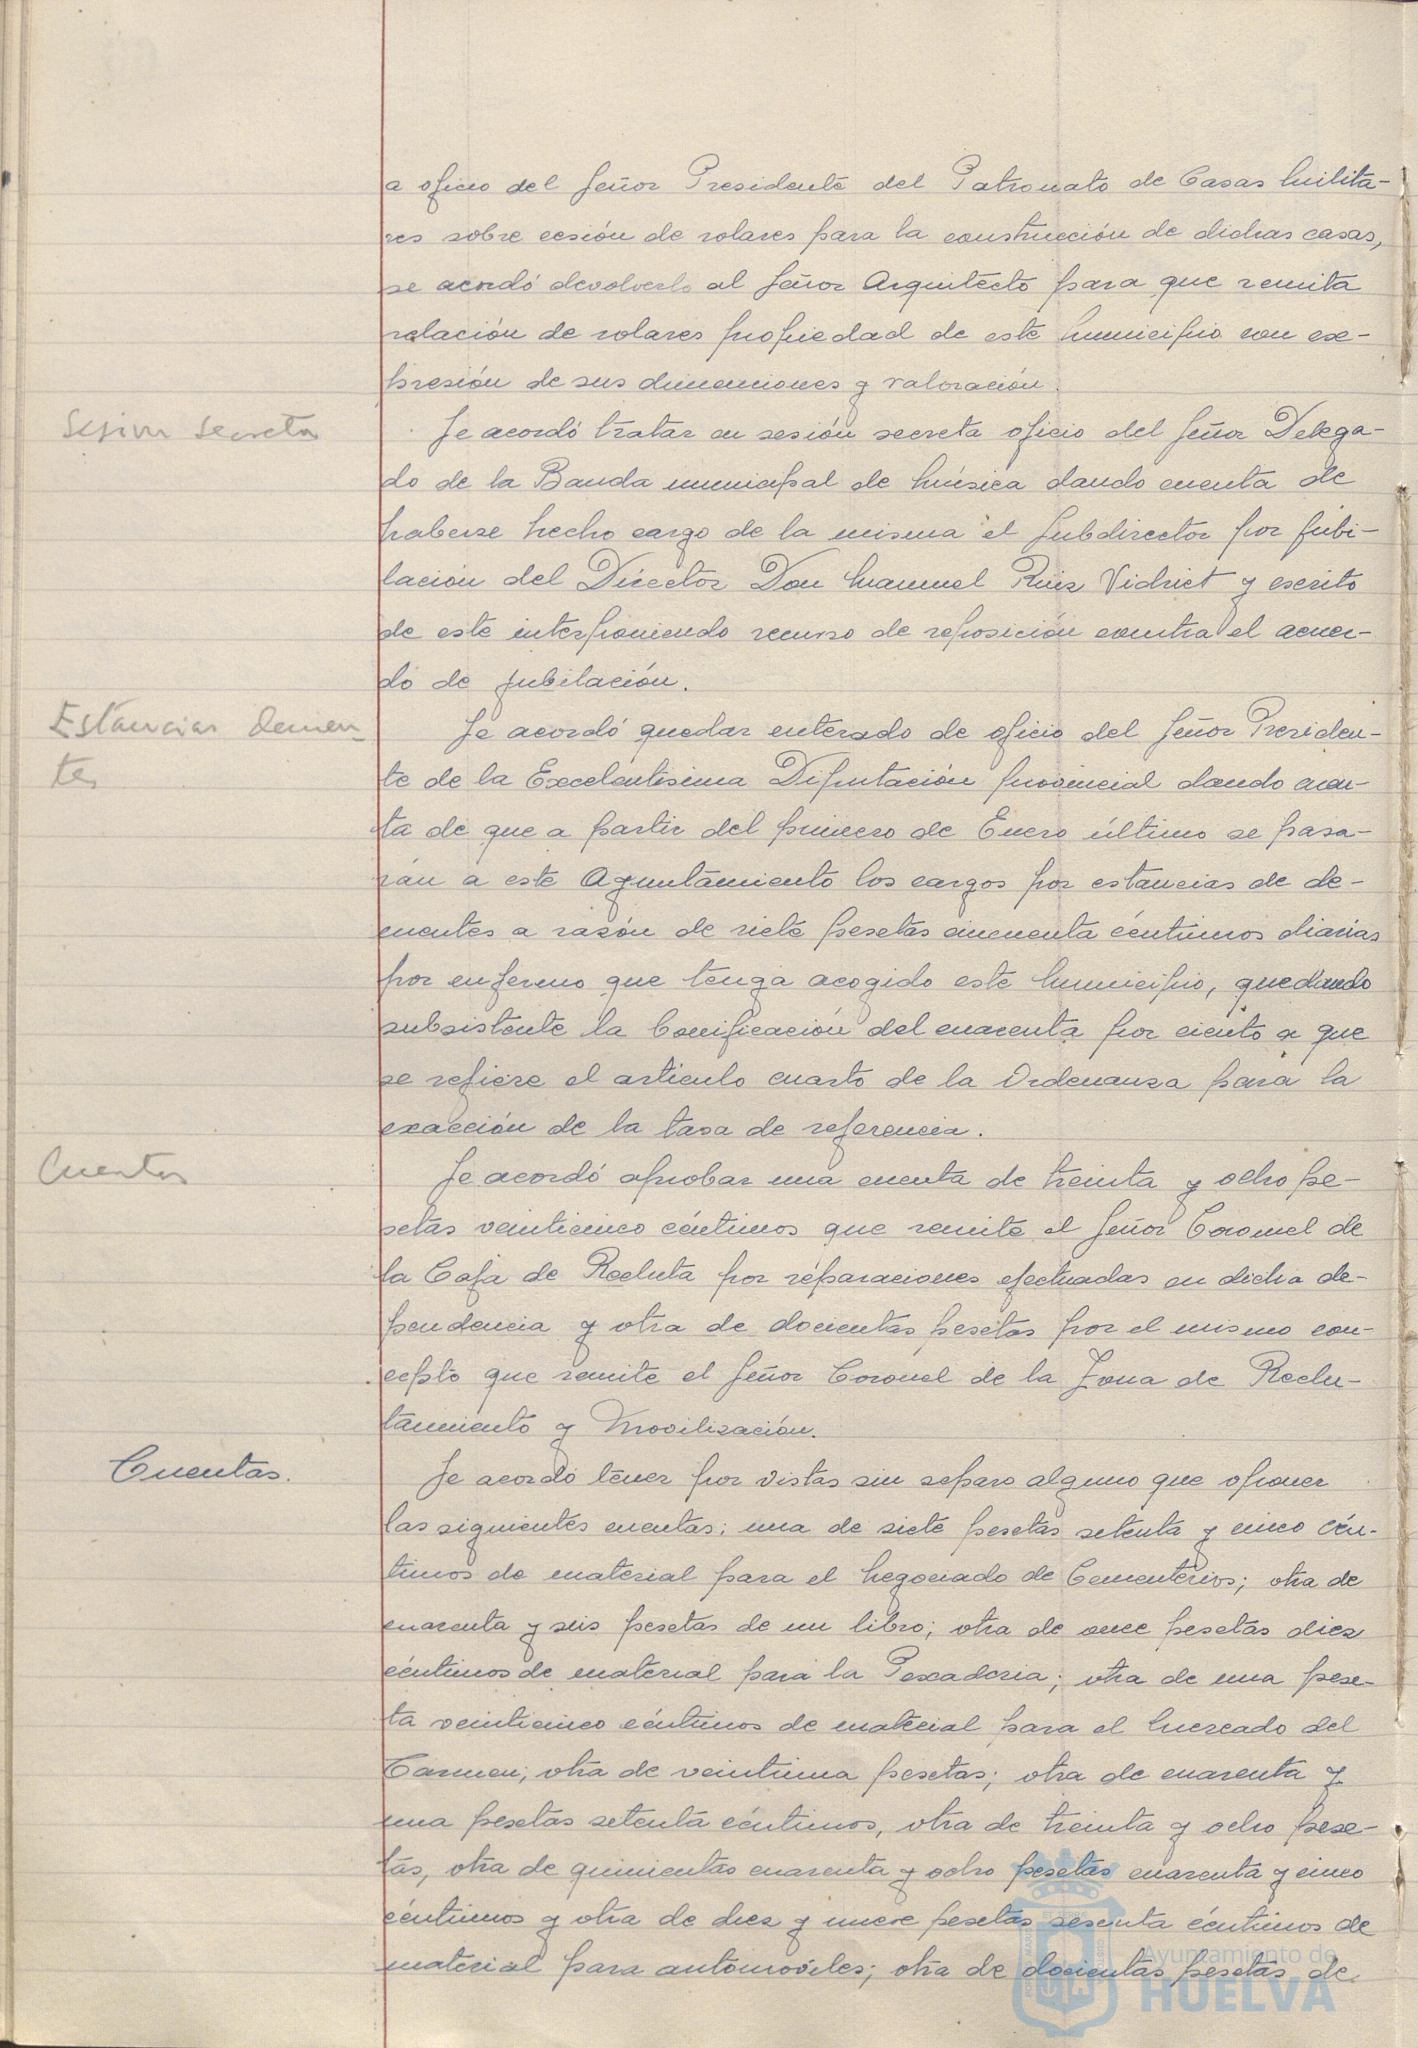 a oficio del Señor Presidente del Patronato de Casas Milita-
res sobre cesión de solares para la construcción de dichas casas,
se acordó devolverlo al Señor Arquitecto para que remita
relación de solares propiedad de este Municipio con ex-
presión de sus dimenciones y valoración.
Sesion secreta
Se acordó tratar en sesión secreta oficio del Señor Delega-
do de la Banda municipal de Música dando cuenta de
haberse hecho cargo de la misma el Subdirector por jubi-
lación del Director Don Manuel Ruiz Vidriet y escrito
de este interponiendo recurso de reposición contra el acuer-
do de jubilación.
Estancias demen-
tes
Se acordó quedar enterado de oficio del Señor Presiden-
te de la Excelentisima Diputación provincial dando cuen-
ta de que a partir del primero de Enero último se pasa-
rán a este Ayuntamiento los cargos por estancias de de-
mentes a razón de siete pesetas cincuenta céntimos diarias
por enfermo que tenga acogido este Municipio, quedando
subsistente la bonificación del cuarenta por ciento a que
se refiere el articulo cuarto de la Ordenanza para la
exacción de la tasa de referencia.
Cuentas
Se acordó aprobar una cuenta de treinta y ocho pe-
setas veinticinco céntimos que remite el Señor Coronel de
la Caja de Recluta por reparaciones efectuadas en dicha de-
pendencia y otra de docientas pesetas por el mismo con-
cepto que remite el Señor Coronel de la Zona de Reclu-
tamiento y Movilización.
Cuentas.
Se acordó tener por vistas sin reparo alguno que oponer
las siguientes cuentas; una de siete pesetas setenta y cinco cén-
timos de material para el Negociado de Cementerios; otra de
cuarenta y seis pesetas de un libro; otra de once pesetas diez
céntimos de material para la Pescaderia; otra de una pese-
ta veinticinco céntimos de material para el Mercado del
Carmen; otra de veintiuna pesetas; otra de cuarenta y
una pesetas setenta céntimos, otra de treinta y ocho pese-
tas, otra de quinientas cuarenta y ocho pesetas cuarenta y cinco
céntimos y otra de diez y nueve pesetas sesenta céntimos de
material para automoviles; otra de docientas pesetas de
Ayuntamiento de
HUELVA